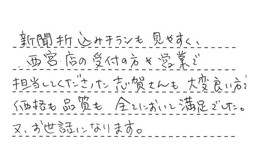 新聞折込みチラシも見やすく、
西宮店の受付の方も営業で
担当してくださった志賀さんも大変良い方で
価格も品質も全てにおいて満足でした。
又、お世話になります。